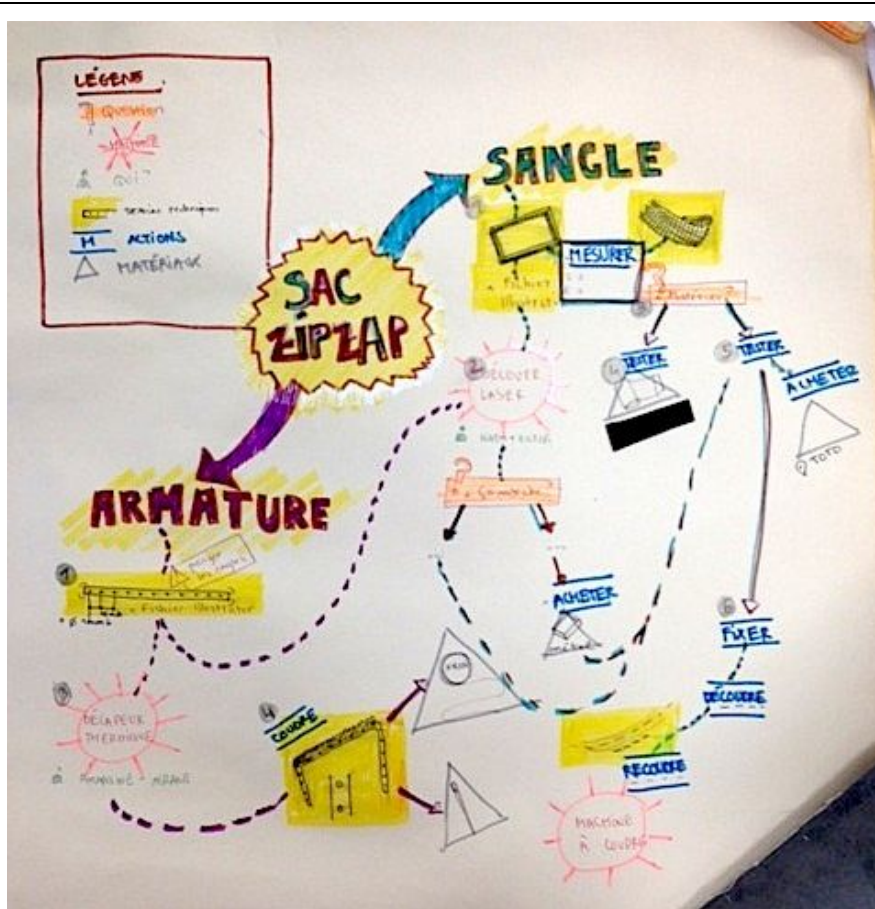 LÉGENE
Question
QUI?
dessins techniques
M ACTIONS
MATÉRIAUX
SAC
ZIPZAP
SANGLE
1
+ Fichier
illustrator
MESURER
2
DÉCOUPE
LASER
3
4
TESTER
5
TESTER
ACHETER
TOTO
?
ACHETER
6
FIXER
DÉCOUDRE
RECOUDRE
MACHINE
À COUDRE
ARMATURE
1
+ Fichier illustrator
3
DÉCAPEUR
THERMIQUE
4
COUDRE